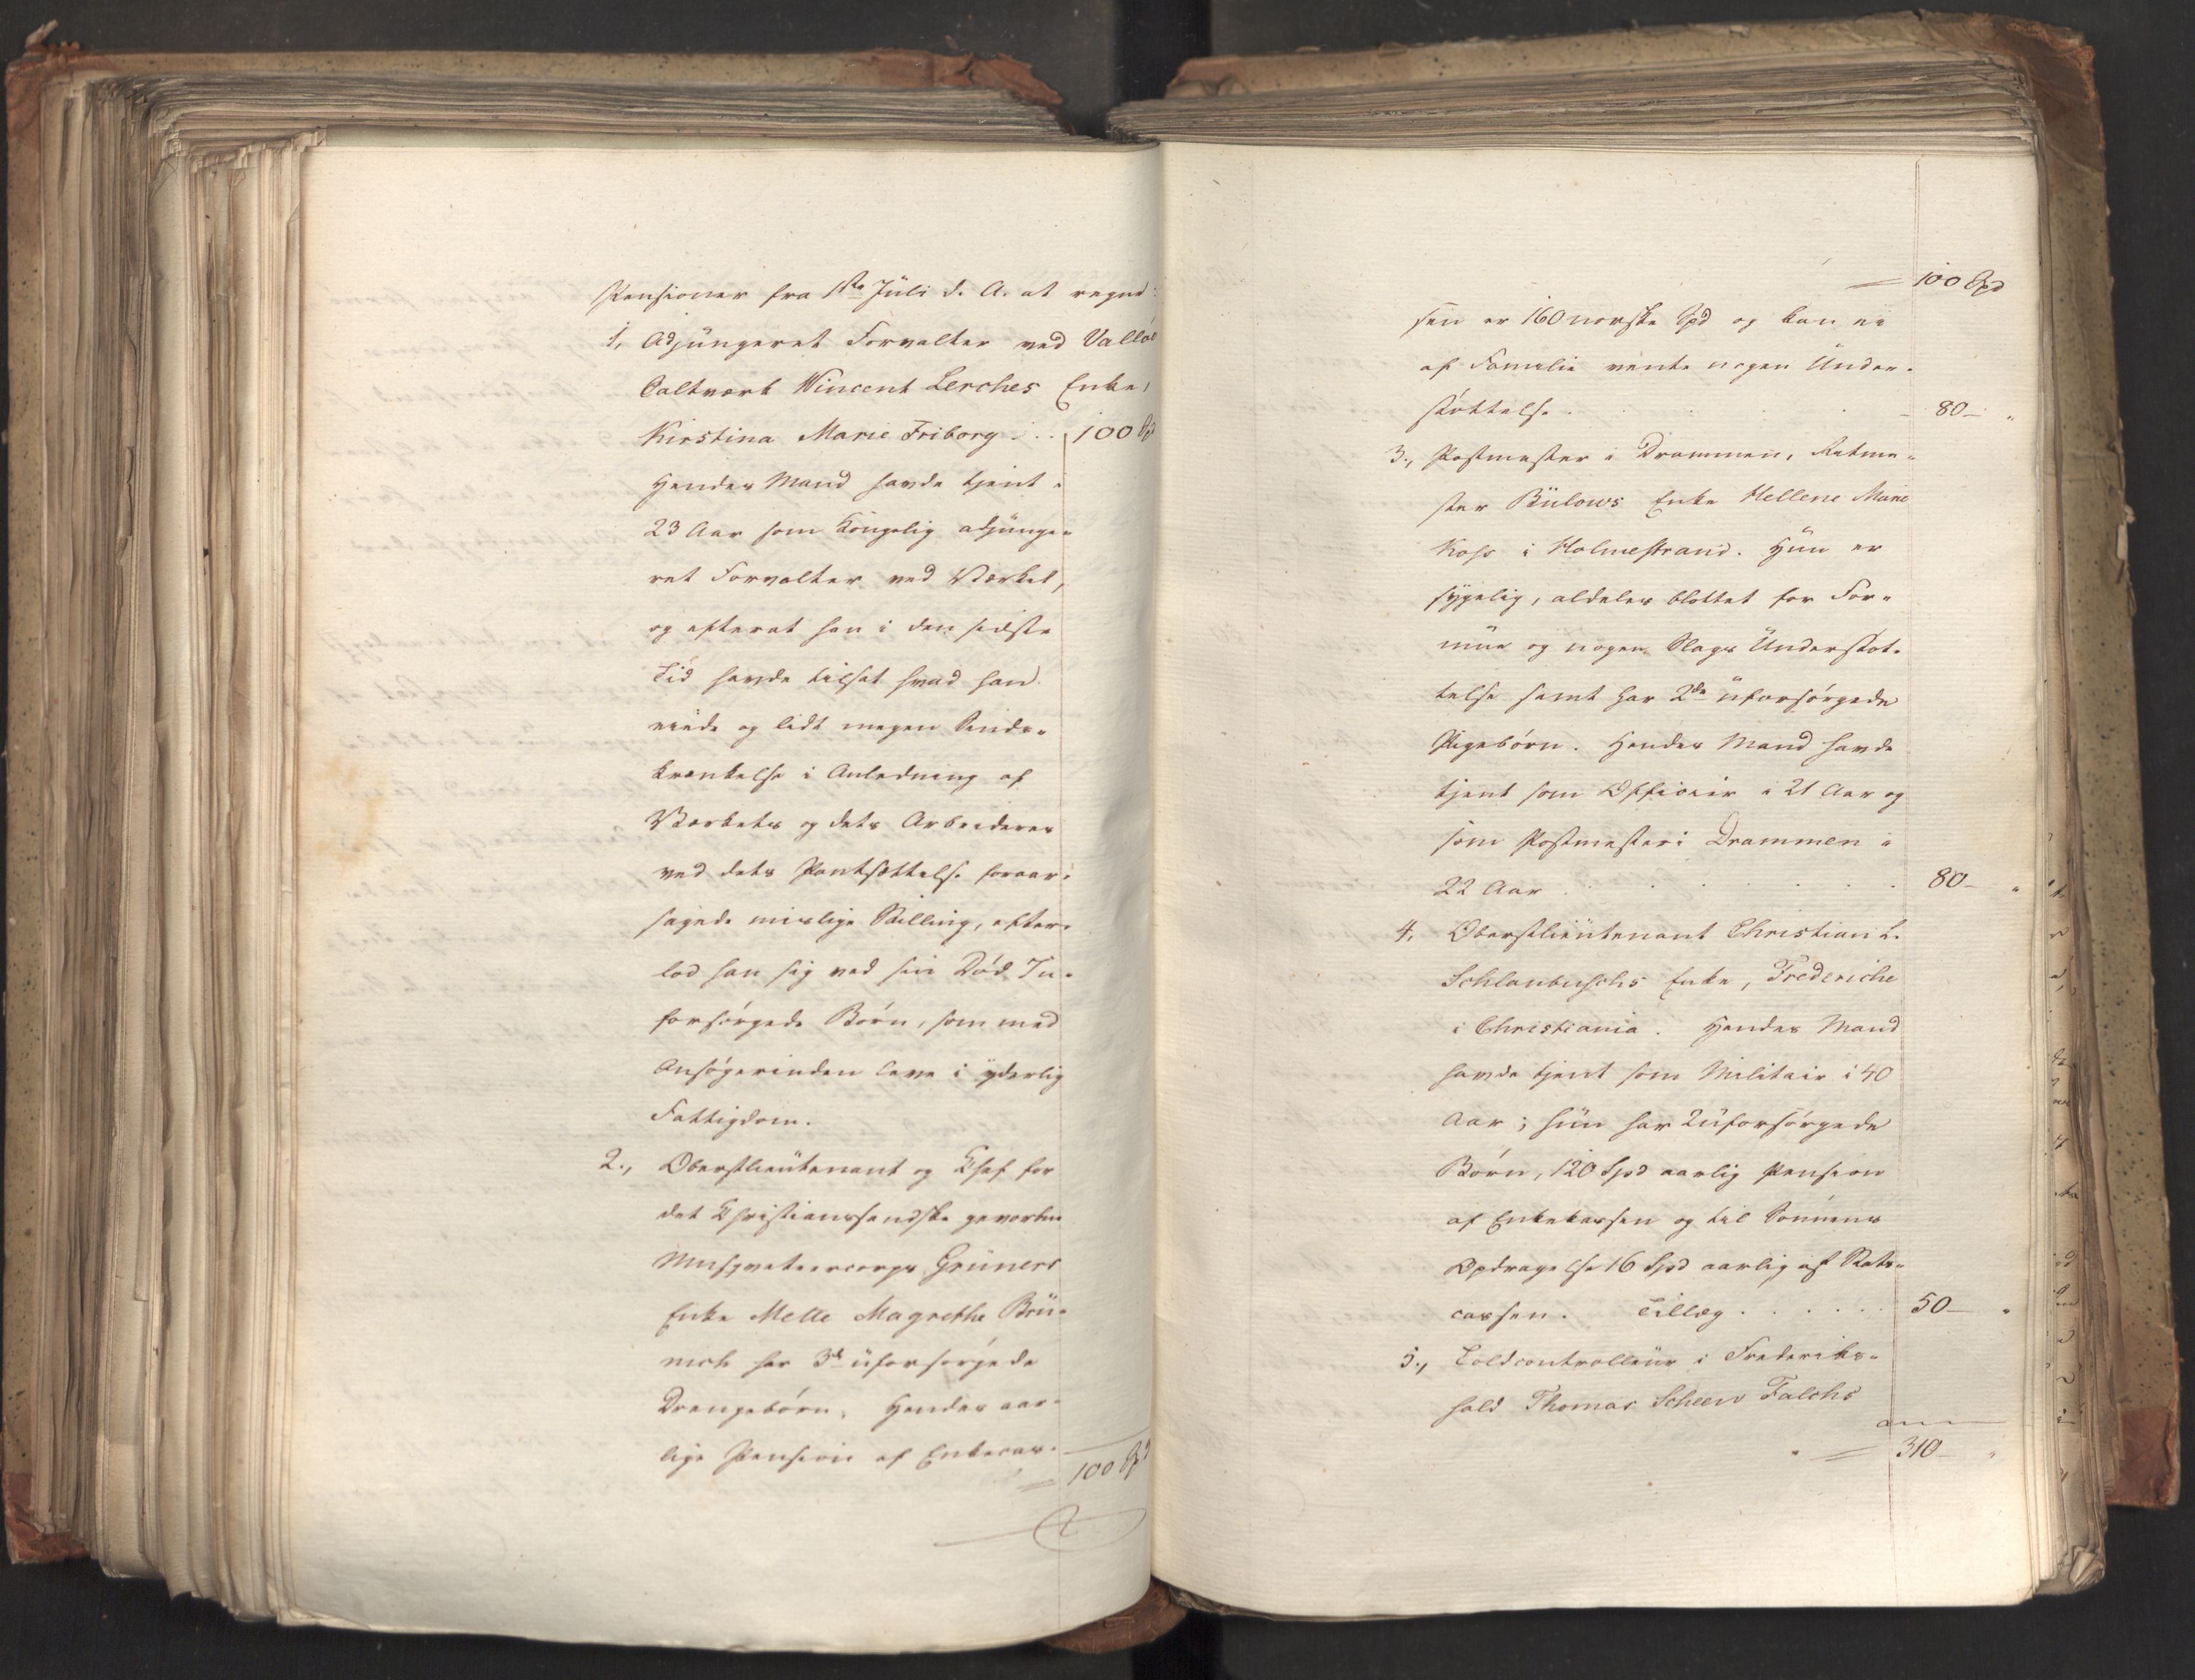 Pensioner fra 1ste Juli d. A. at regne:
1, Adjungeret Forvalter ved Valløe
Saltværk Wincent Lerches Enke,
Kirstina Marie Friborg . . . 100 Spd
Hendes Mand havde tjent i
23 Aar som Kongelig adjunge-
ret Forvalter ved Værket,
og efterat han i den sidste
Tid havde tilsat hvad han
eiede og lidt megen Sinds-
krænkelse i Anledning af
Værkets og dets Arbeideres
ved dets Pantsættelse foraar-
sagede mislige Stilling, efter-
lod han sig ved sin Død 7 u-
forsørgede Børn, som med
Ansøgerinden leve i yderlig
Fattigdom.
2., Oberstlieutenant og Chef for
det Christianssandske gevorbne
Musqveteercorps Grüners
Enke Mette Magrethe Brü-
nich har 3de uforsørgede
Drengebørn. Hendes aar-
lige Pension af Enkecas-
= 100 Spd
= 100 Spd
sen er 160 norske Spd og kan ei
af Familie vente nogen Under-
støttelse . . . . 80 — "
3., Postmester i Drammen, Ritme-
ster Bülows Enke Hellene Marie
Koss i Holmestrand. Hun er
sygelig, aldeles blottet for For-
mue og nogen Slags Understøt-
telse samt har 2de uforsørgede
Pigebørn. Hendes Mand havde
tjent som Officeer i 21 Aar og
som Postmester i Drammen i
22 Aar . . . . . . . 80 — "
4. Oberstlieutenant Christian L.
Schlanbuschs Enke, Frederiche
i Christiania. Hendes Mand
havde tjent som Militair i 40
Aar; hun har 2 uforsørgede
Børn, 120 Spd aarlig Pension
af Enkekassen og til Sønnens
Opdragelse 16 Spd aarlig af Stats-
cassen. Tillæg . . . . . . 50 — "
5., Toldcontrolleur i Frederiks-
hald Thomas Scheen Falchs
= 310 — "